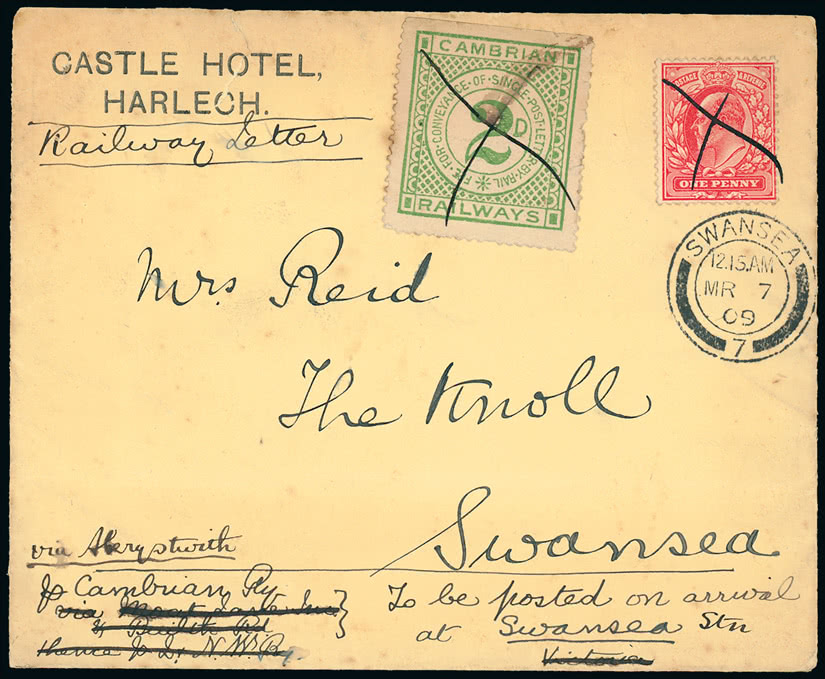 CASTLE HOTEL,
HARLECH.
Railway Letter
CAMBRIAN
FEE·FOR·CONVEYANCE·OF·SINGLE·POST·LETTER·BY·RAIL
2D
RAILWAYS
POSTAGE & REVENUE
ONE PENNY
SWANSEA
12.15.AM
MR 7
09
7
Mrs Reid
The Knoll
Swansea
via Abrystwith
p Cambrian Ry
via Moat Lane Jn
& Builth Rd
thence p L. N. W. Ry.
To be posted on arrival
at Swansea Stn
Victoria